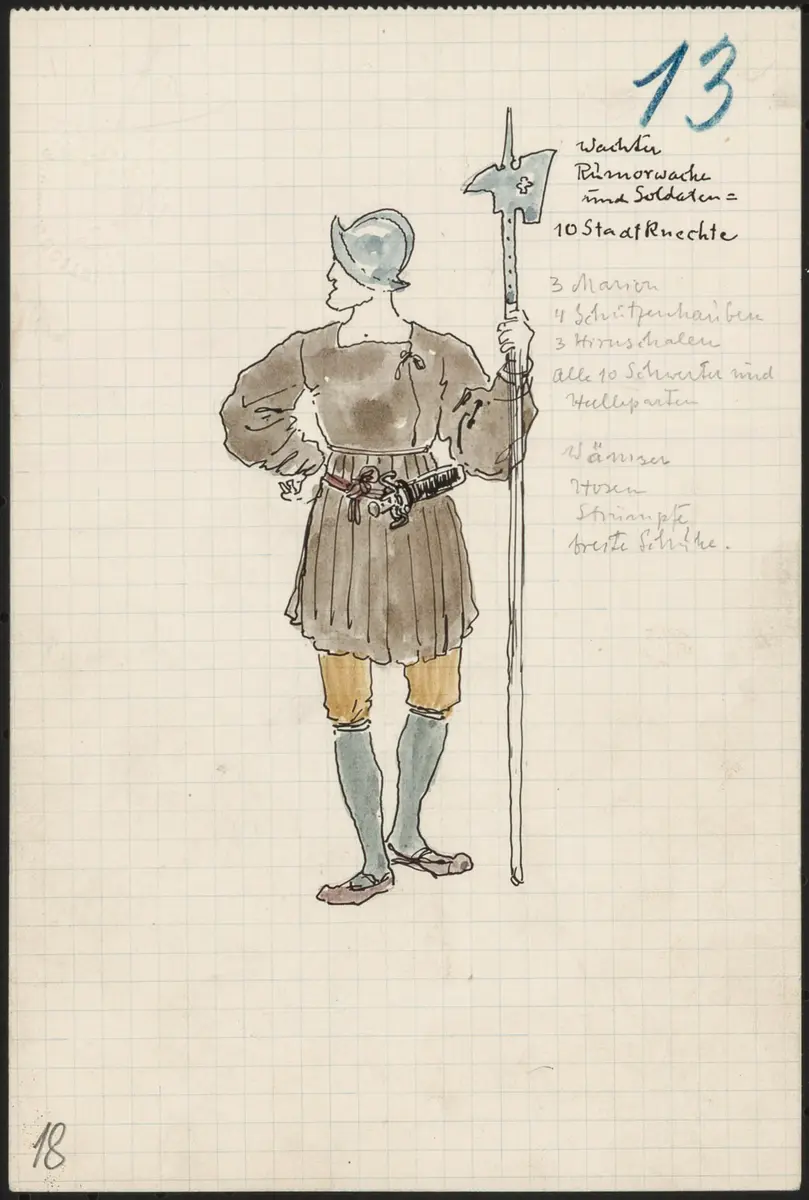 13
Wachter
Rumorwache
und Soldaten =
10 Stadtknechte
3 Marion
4 Schützenhauben
3 Hirnschalen
alle 10 Schwerter und
Helleparten
Wämser
Hosen
Strümpfe
breite Schuhe.
18